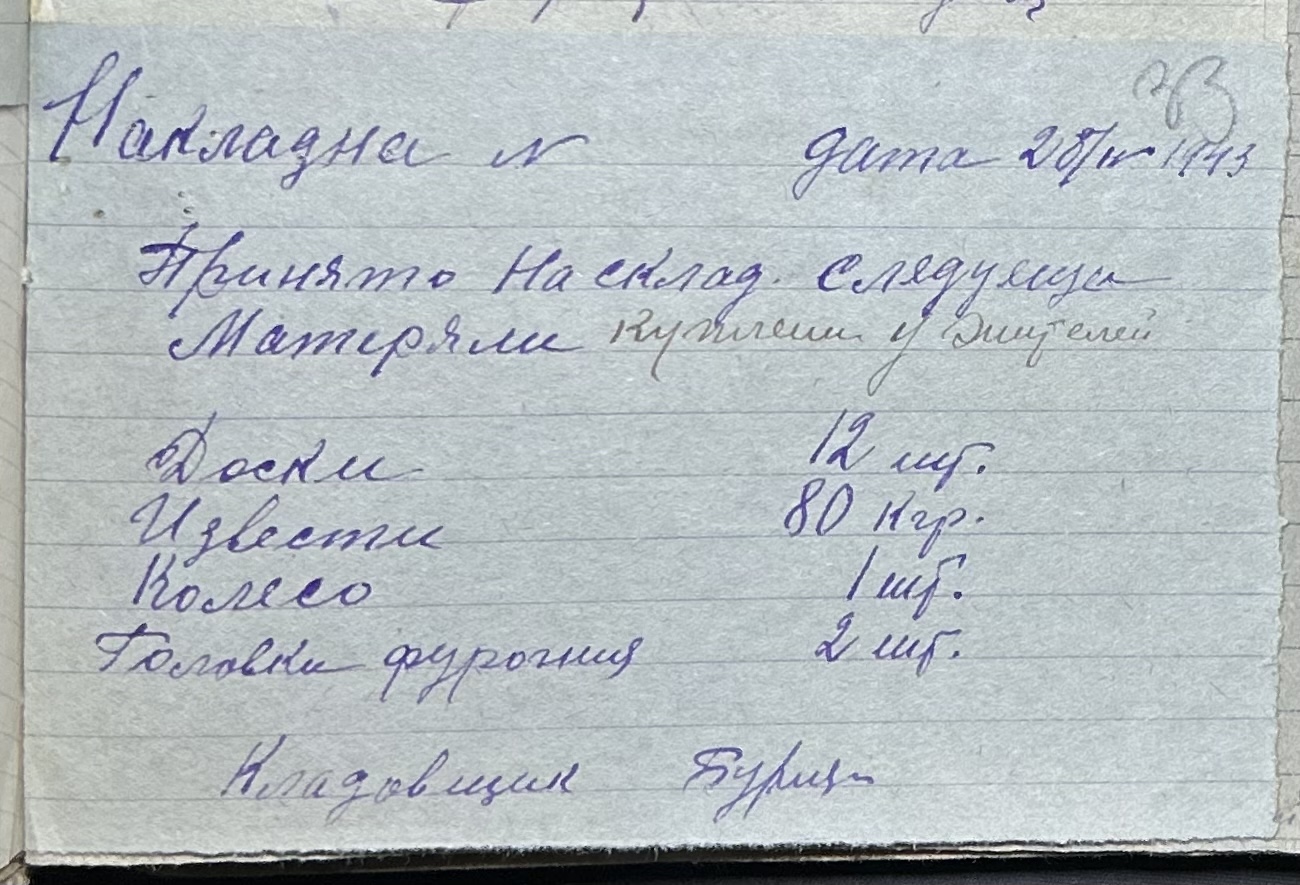 Накладна N дата 28/IV 1943
Принято На склад. следующи
Матеряли куплени у жителей
Доски 12 шт.
Извести 80 кгр.
Колесо 1 шт.
Головки фурогния 2 шт.
Кладовщик